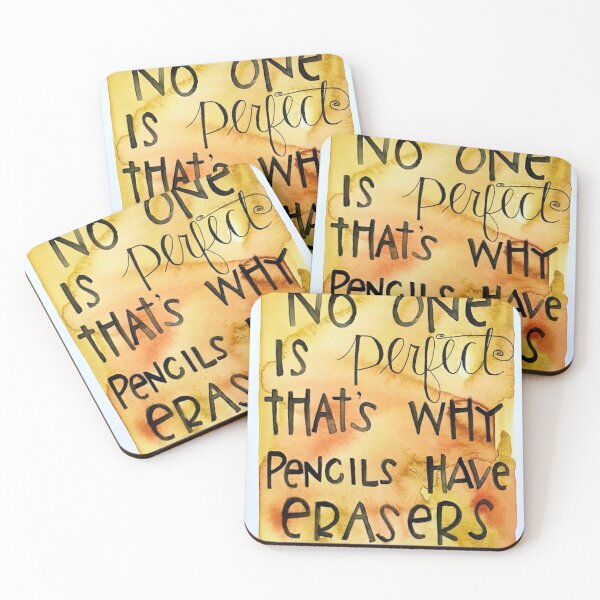 NO ONE
IS perfect
tHAt's WH
NO ONE
IS perfect
tHAt's WHY
PENCILS HAVE
NO ONE
IS perfect
tHAt's WHY
PENCILS
ERAS
NO ONE
IS perfect
tHAt's WHY
PENCILS HAVE
eRASeRS